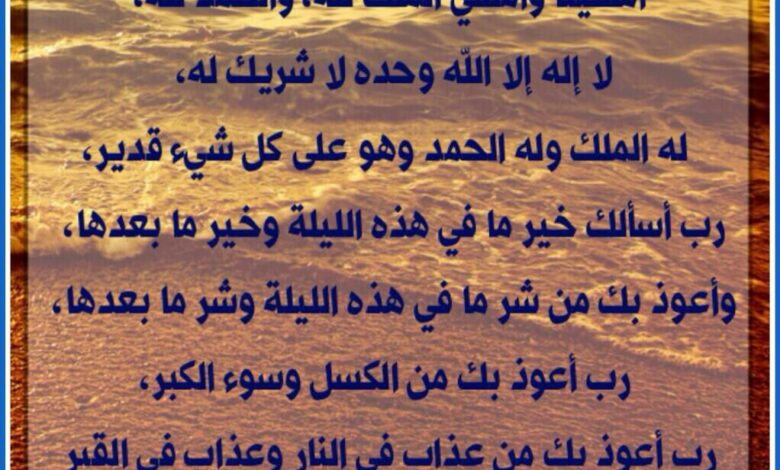 أمسينا وأمسى الملك لله، والحمد لله،
لا إله إلا الله وحده لا شريك له،
له الملك وله الحمد وهو على كل شيء قدير،
رب أسألك خير ما في هذه الليلة وخير ما بعدها،
وأعوذ بك من شر ما في هذه الليلة وشر ما بعدها،
رب أعوذ بك من الكسل وسوء الكبر،
رب أعوذ بك من عذاب في النار وعذاب في القبر